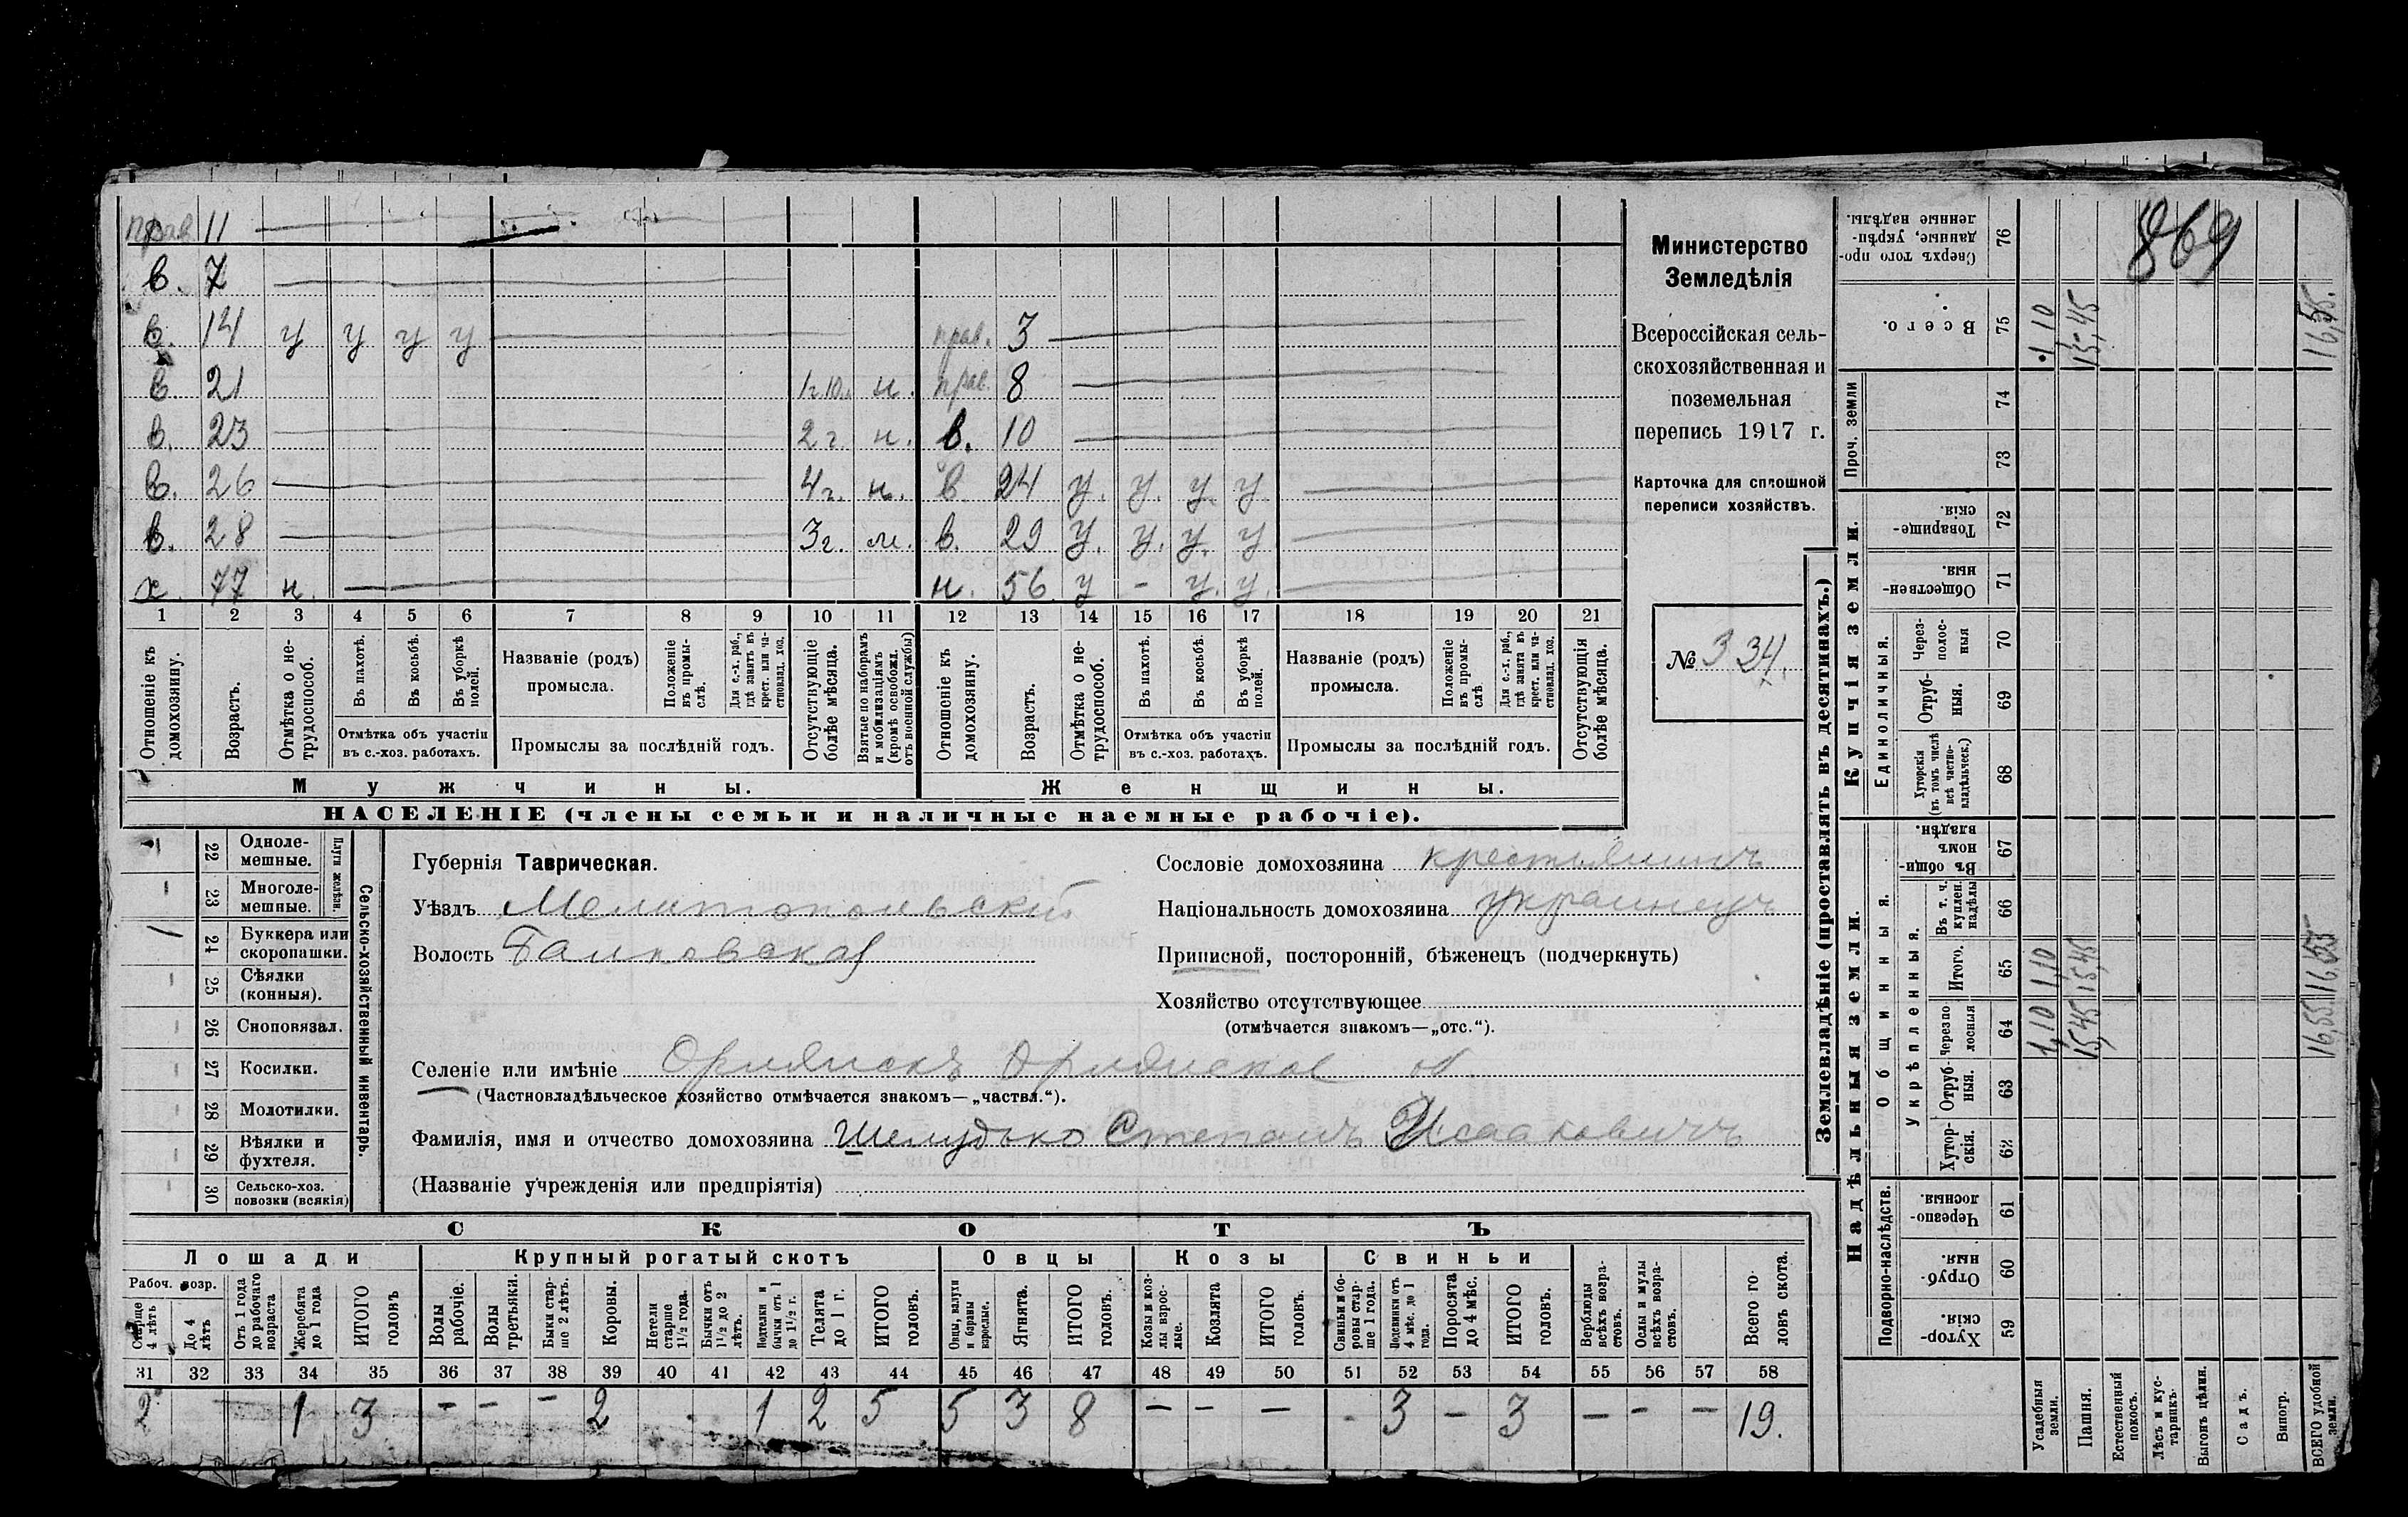 прав 11
в. 7
в. 14 у у у у прав. 3
в 21 1г.10м. н. прав. 8
в. 23 2 г. н. в. 10
в. 26 4 г. н. в 24 у. у. у. у
в. 28 3 г. м. в. 29 у. у. у. у
х. 77 н. — н. 56 у — у. у.
1 2 3 4 5 6 7 8 9 10 11 12 13 14 15 16 17 18 19 20 21
Отношеніе къ домохозяину.
Возрастъ.
Отмѣтка о нетрудоспособ.
Въ пахотѣ.
Въ косьбѣ.
Въ уборкѣ полей.
Отмѣтка объ участіи
въ с.-хоз. работахъ.
Названіе (родъ)
промысла.
Положеніе въ промыслѣ.
Для с.-х. раб., гдѣ занятъ въ крест. или частновлад. хоз.
Промыслы за послѣдній годъ.
Отсутствующіе болѣе мѣсяца.
Взятые по наборамъ и мобилизаціямъ (кромѣ освобожд. отъ военной службы)
Отношеніе къ домохозяину.
Возрастъ.
Отмѣтка о нетрудоспособ.
Въ пахотѣ.
Въ косьбѣ.
Въ уборкѣ полей.
Отмѣтка объ участіи
въ с.-хоз. работахъ.
Названіе (родъ)
промысла.
Положеніе въ промыслѣ
Для с.-х. раб., гдѣ занята въ крест. или частновлад. хоз.
Промыслы за послѣдній годъ.
Отсутствующія болѣе мѣсяца.
Мужчины. Женщины.
НАСЕЛЕНІЕ (члены семьи и наличные наемные рабочіе).
Министерство
Земледѣлія
Всероссійская сель-
скохозяйственная и
поземельная
перепись 1917 г.
Карточка для сплошной
переписи хозяйствъ.
№ 334.
22 Одноле-
мешные.
23 Многоле-
мешные.
Плуги желѣзн.
24 Буккера или
скоропашки.
25 Сѣялки
(конныя).
26 Сноповязал.
27 Косилки.
28 Молотилки.
29 Вѣялки и
фухтеля.
30 Сельско-хоз.
повозки (всякія)
Сельско-хозяйственный инвентарь.
Губернія Таврическая.
Уѣздъ Мелитопольскій
Волость Балковская
Сословіе домохозяина крестьянинъ
Національность домохозяина украинецъ
Приписной, посторонній, бѣженецъ (подчеркнуть)
Хозяйство отсутствующее
(отмѣчается знакомъ—„отс.“).
Селеніе или имѣніе Орлянскъ Орлянское
(Частновладѣльческое хозяйство отмѣчается знакомъ—„частвл.“).
Фамилія, имя и отчество домохозяина Шелудько Степанъ Исааковичъ
(Названіе учрежденія или предпріятія)
СКОТЪ
Лошади Крупный рогатый скотъ Овцы Козы Свиньи
Рабоч. возр.
Старше 4 лѣтъ
До 4 лѣтъ
Отъ 1 года до рабочаго возраста
Жеребята до 1 года
ИТОГО головъ
Волы рабочіе.
Волы третьяки.
Быки старше 2 лѣтъ.
Коровы.
Нетели старше 1½ года.
Бычки отъ 1½ до 2 лѣтъ.
Подтелки и бычки отъ 1 до 1½ г.
Телята до 1 г.
ИТОГО головъ.
Овцы, валухи и бараны взрослые.
Ягнята.
ИТОГО головъ.
Козы и козлы взрослые.
Козлята
ИТОГО головъ.
Свиньи и боровы старше 1 года.
Подсвинки отъ 4 мѣс. до 1 года.
Поросята до 4 мѣс.
ИТОГО головъ.
Верблюды всѣхъ возрастовъ.
Ослы и мулы всѣхъ возрастовъ.
Всего головъ скота.
31 32 33 34 35 36 37 38 39 40 41 42 43 44 45 46 47 48 49 50 51 52 53 54 55 56 57 58
2 1 3 — — — 2 1 2 5 5 3 8 — — — 3 — 3 — — — 19.
Землевладѣніе (проставлять въ десятинахъ.)
Надѣльныя земли. Купчія земли. Проч. земли
Подворно-наслѣдств.
Общинныя.
Укрѣпленныя.
Единоличныя.
59 Хуторскія.
60 Отрубныя.
61 Черезполосныя.
62 Хуторскія.
63 Отрубныя.
64 Черезполосныя
65 Итого.
66 Въ т. ч. куплен. надѣлы
67 Въ общинномъ владѣн.
68 Хуторскія (въ томъ числѣ всѣ частновладѣльческ.)
69 Отрубныя.
70 Черезполосныя
71 Общественныя.
72 Товарищескія.
73
74
75 Всего.
76 Сверхъ того проданные, укрѣпленные надѣлы.
Усадебныя земли. 1,10 1,10 1,10
Пашня. 15,45 15,45 15,45
Естественный покосъ.
Лѣсъ и кустарникъ.
Выгонъ цѣлин.
Садъ.
Виногр.
ВСЕГО удобной земли. 16,55 16,55 16,55.
869